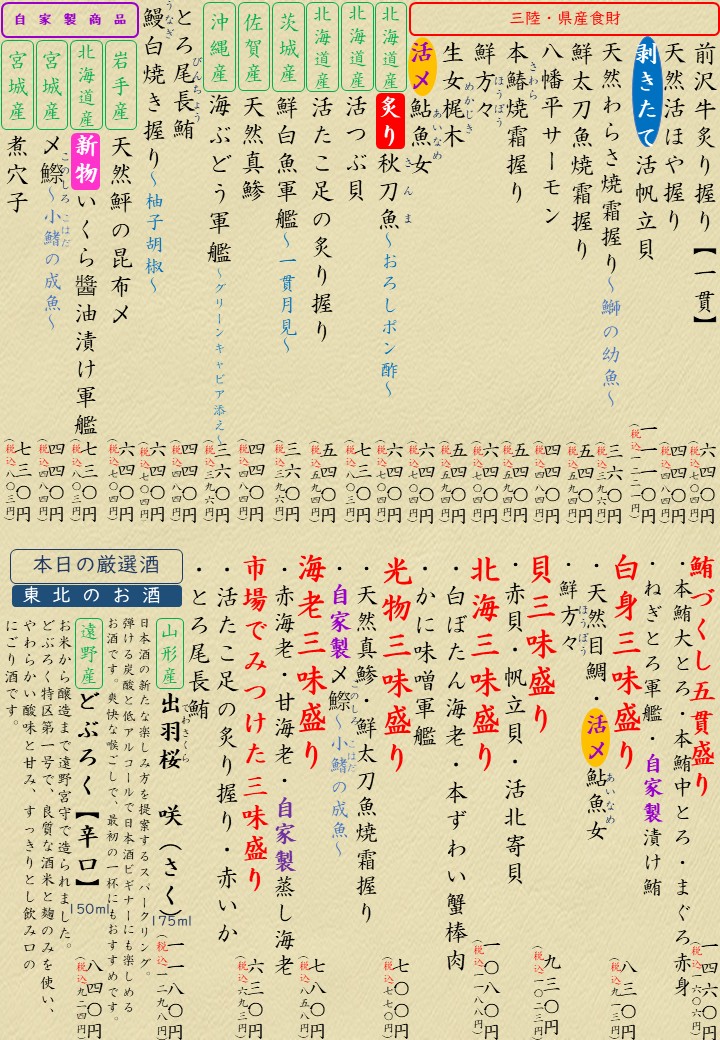 三陸・県産食財
前沢牛炙り握り【一貫】
六四〇円
(税込七〇四円)
天然活ほや握り
四四〇円
(税込四八四円)
剥きたて活帆立貝
一一一〇円
(税込一二二一円)
天然わらさ焼霜握り～鰤の幼魚～
三六〇円
(税込三九六円)
鮮太刀魚焼霜握り
五四〇円
(税込五九四円)
八幡平サーモン
四四〇円
(税込四八四円)
本鰆焼霜握り
さわら
五四〇円
(税込五九四円)
鮮方々
ほうぼう
六四〇円
(税込七〇四円)
生女梶木
めかじき
四四〇円
(税込四八四円)
活〆鮎魚女
あいなめ
六四〇円
(税込七〇四円)
北海道産
炙り秋刀魚～おろしポン酢～
さんま
六四〇円
(税込七〇四円)
北海道産
活つぶ貝
七三〇円
(税込八〇三円)
北海道産
活たこ足の炙り握り
五四〇円
(税込五九四円)
茨城産
鮮白魚軍艦～一貫月見～
三六〇円
(税込三九六円)
佐賀産
天然真鯵
四四〇円
(税込四八四円)
沖縄産
海ぶどう軍艦～グリーンキャビア添え～
三六〇円
(税込三九六円)
とろ尾長鮪
びんちょう
四四〇円
(税込四八四円)
鰻白焼き握り～柚子胡椒～
うなぎ
六四〇円
(税込七〇四円)
自家製商品
岩手産
天然鮃の昆布〆
六四〇円
(税込七〇四円)
北海道産
新物いくら醬油漬け軍艦
七三〇円
(税込八〇三円)
宮城産
〆鰶～小鰭の成魚～
このしろ こはだ
四四〇円
(税込四八四円)
宮城産
煮穴子
七三〇円
(税込八〇三円)
鮪づくし五貫盛り
・本鮪大とろ・本鮪中とろ・まぐろ赤身
・ねぎとろ軍艦・自家製漬け鮪
一四六〇円
(税込一六〇六円)
白身三味盛り
・天然目鯛・活〆鮎魚女
あいなめ
・鮮方々
ほうぼう
八三〇円
(税込九一三円)
貝三味盛り
・赤貝・帆立貝・活北寄貝
九三〇円
(税込一〇二三円)
北海三味盛り
・白ぼたん海老・本ずわい蟹棒肉
・かに味噌軍艦
一〇八〇円
(税込一一八八円)
光物三味盛り
・天然真鯵・鮮太刀魚焼霜握り
・自家製〆鰶～小鰭の成魚～
このしろ こはだ
七〇〇円
(税込七七〇円)
海老三味盛り
・赤海老・甘海老・自家製蒸し海老
七八〇円
(税込八五八円)
市場でみつけた三味盛り
・活たこ足の炙り握り・赤いか
・とろ尾長鮪
六三〇円
(税込六九三円)
本日の厳選酒
東北のお酒
山形産
出羽桜 咲(さく)
でわざくら
175ml
一一八〇円
(税込一二九八円)
日本酒の新たな楽しみ方を提案するスパークリング。
弾ける炭酸と低アルコールで日本酒ビギナーにも楽しめる
お酒です。爽快な喉ごしで、最初の一杯にもおすすめです。
遠野産
どぶろく【辛口】
150ml
八四〇円
(税込九二四円)
お米から醸造まで遠野宮守で造られました。
どぶろく特区第一号で、良質な酒米と麹のみを使い、
やわらかい酸味と甘み、すっきりとし飲み口の
にごり酒です。